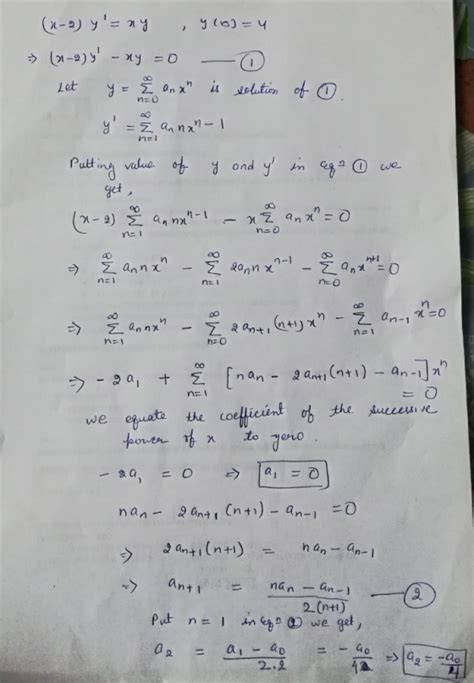 (x-2) y' = xy , y(0) = 4
⇒ (x-2)y' - xy = 0 — ①
Let y = ∑_{n=0}^{∞} a_n x^n is solution of ①.
y' = ∑_{n=1}^{∞} a_n n x^{n-1}
Putting value of y and y' in eqⁿ ① we
get,
(x-2) ∑_{n=1}^{∞} a_n n x^{n-1} - x ∑_{n=0}^{∞} a_n x^n = 0
⇒ ∑_{n=1}^{∞} a_n n x^n - ∑_{n=1}^{∞} 2a_n n x^{n-1} - ∑_{n=0}^{∞} a_n x^{n+1} = 0
⇒ ∑_{n=1}^{∞} a_n n x^n - ∑_{n=0}^{∞} 2a_{n+1}(n+1) x^n - ∑_{n=1}^{∞} a_{n-1} x^n = 0
⇒ -2a_1 + ∑_{n=1}^{∞} [n a_n - 2a_{n+1}(n+1) - a_{n-1}] x^n
= 0
we equate the coefficient of the successive
power of x to zero.
-2a_1 = 0 ⇒ a_1 = 0
n a_n - 2a_{n+1}(n+1) - a_{n-1} = 0
⇒ 2a_{n+1}(n+1) = n a_n - a_{n-1}
⇒ a_{n+1} = \frac{n a_n - a_{n-1}}{2(n+1)} — ②
Put n = 1 in eqⁿ ② we get,
a_2 = \frac{a_1 - a_0}{2.2} = -\frac{a_0}{4} ⇒ a_2 = \frac{-a_0}{4}